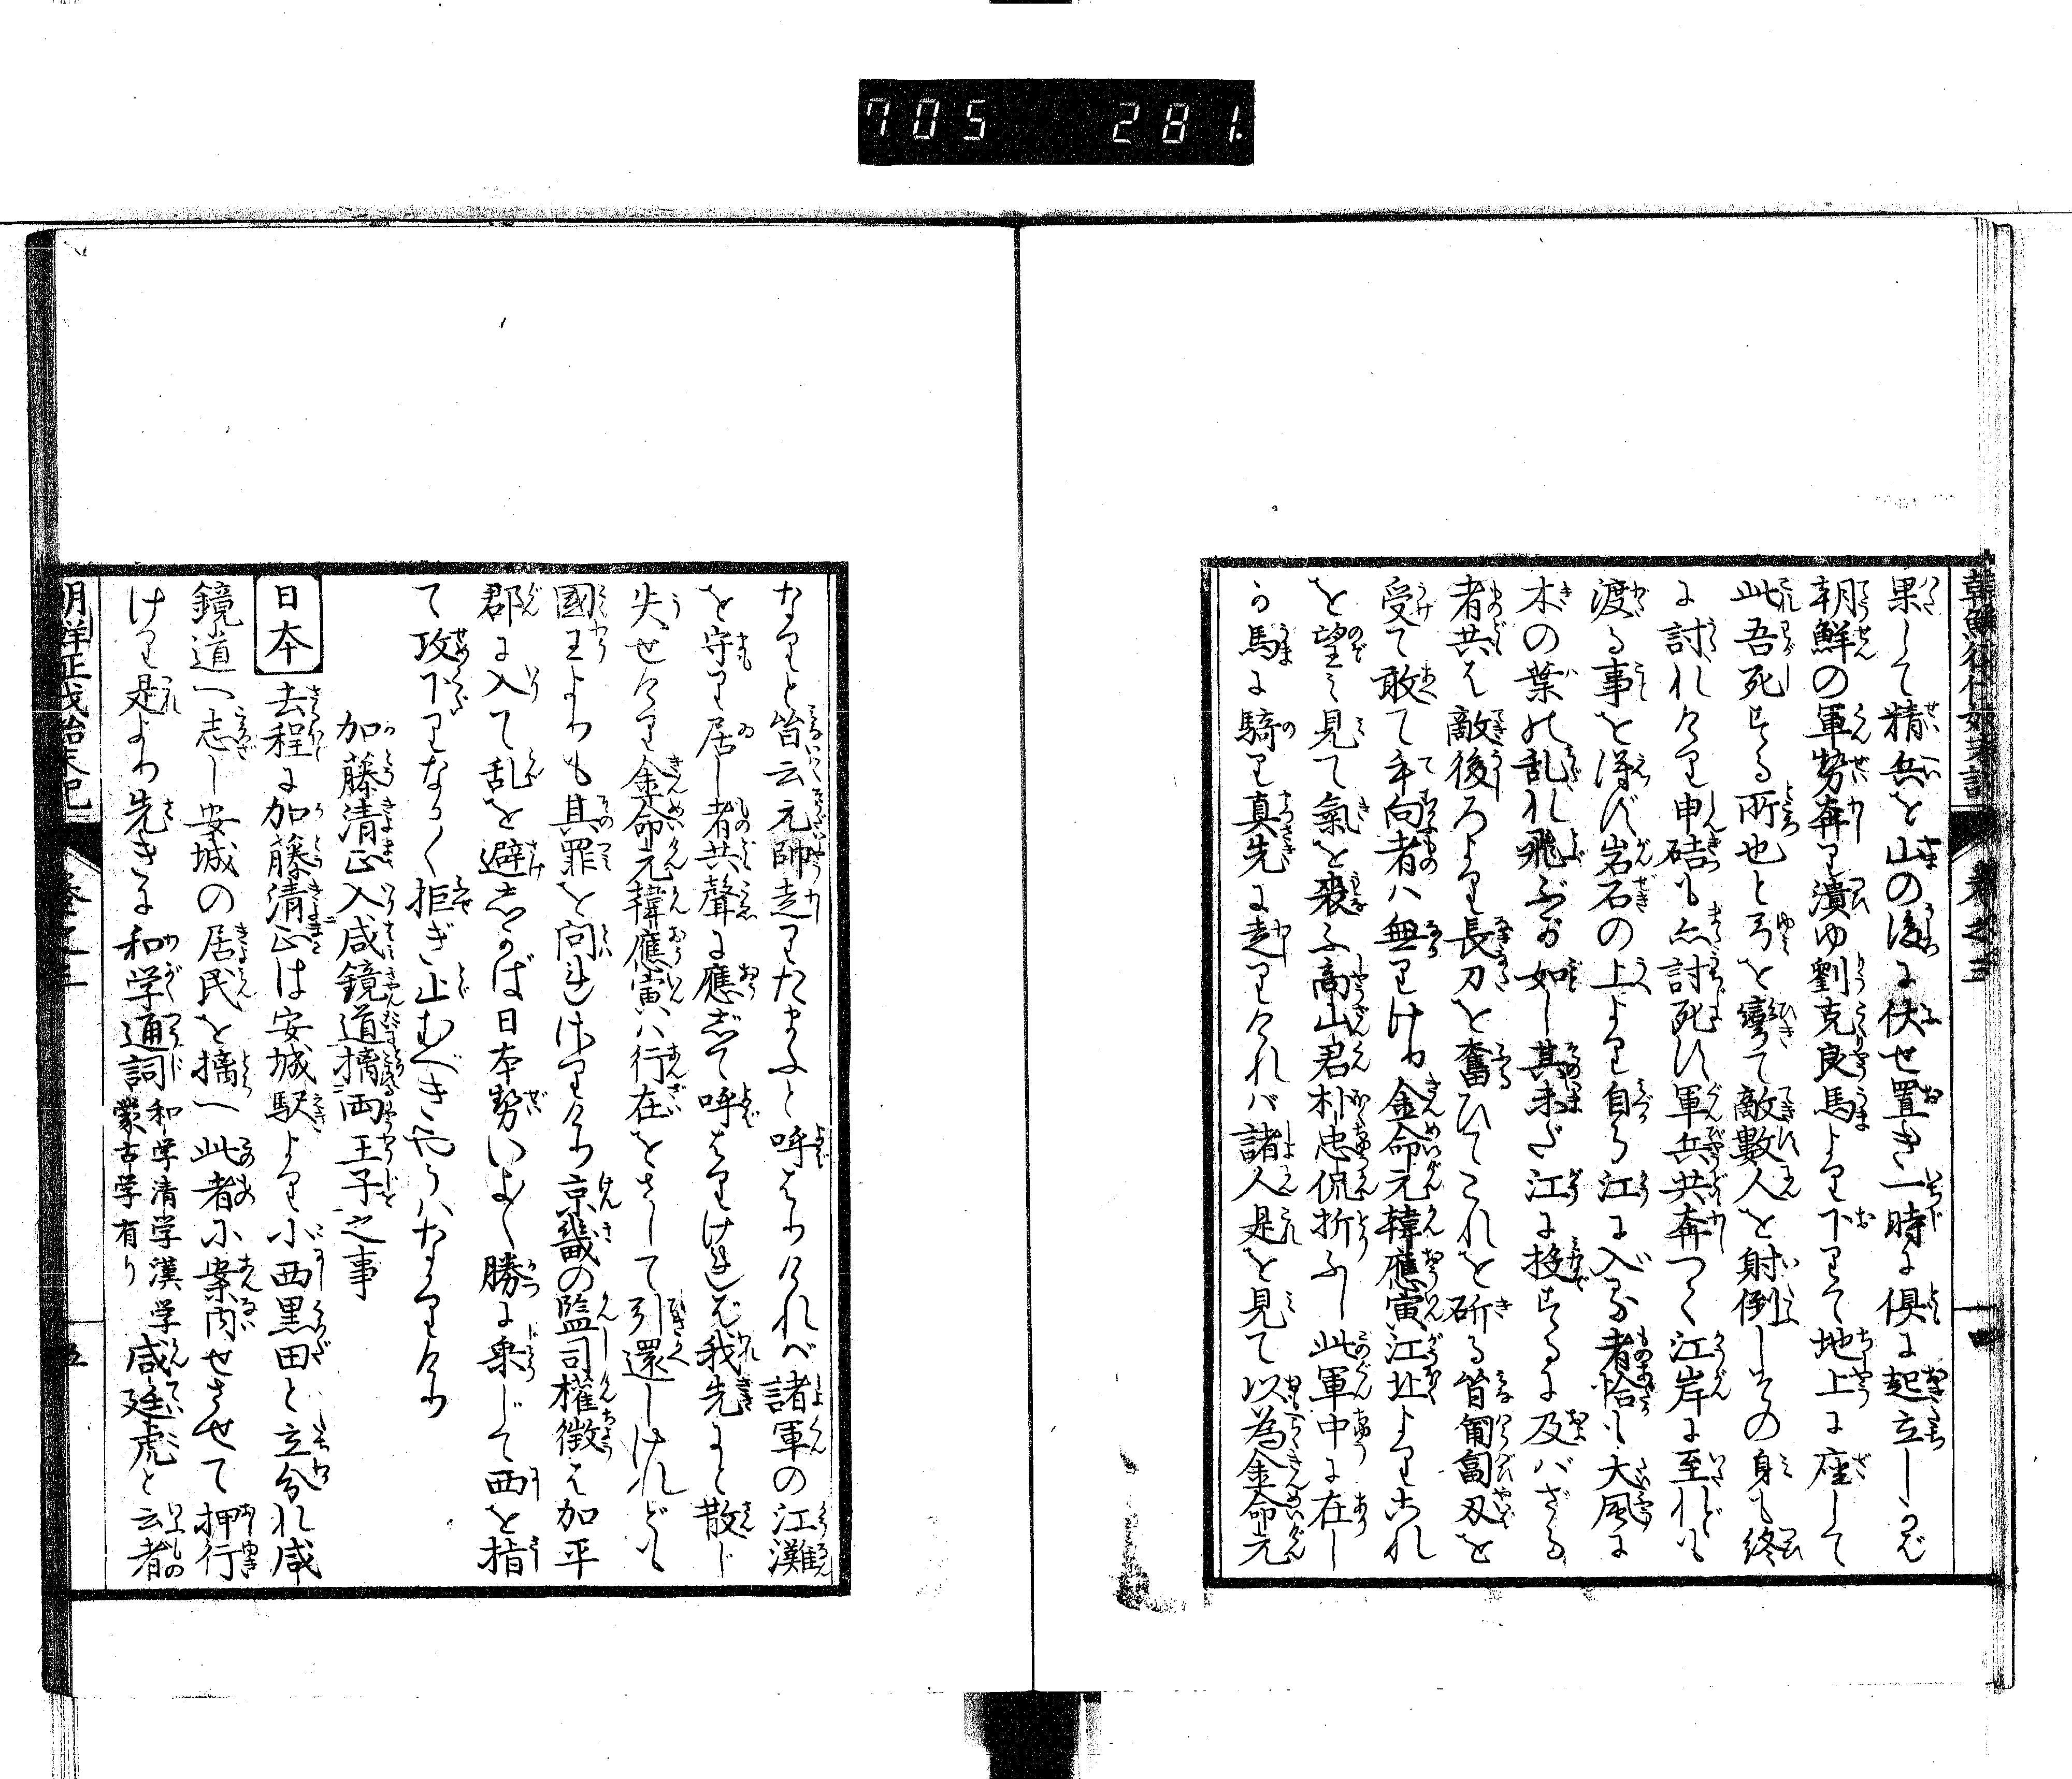 705 281.
果して精兵を山の後に伏せ置き一時に倶に起立しかば
朝鮮の軍勢奔り潰ゆ劉克良馬より下りて地上に座して
此吾死する所也と弓を彎て敵數人を射倒しその身も終
に討れけり申硈も亦討死す軍兵共奔つて江岸に至れども
渡る事を得ず岩石の上より自ら江に入る者恰も大風に
木の葉の乱れ飛ぶが如し其未だ江に投ずるに及バざる
者共は敵後ろより長刀を奮ひてこれを斫る皆匍匐刃を
受て敢て手向者ハ無りけり金命元韓應寅江北よりこれ
を望み見て氣を喪ふ高山君朴忠侃折ふし此軍中に在し
か馬に騎り真先に走りけれバ諸人是を見て以為金命元
なりと皆云元帥走りたまふと呼はりけれバ諸軍の江灘
を守り居し者共聲に應じて呼はりければ我先にと散じ
失せけり金命元韓應寅ハ行在をさして引還しけれども
國王よりも其罪を問れざりけり京畿の監司權徴は加平
郡に入て乱を避しかば日本勢いよ〱勝に乗じて西を指
て攻下りなか〱拒ぎ止むべきやうハなかりけり
加藤清正入咸鏡道擒両王子之事
日本 去程に加藤清正は安城駅より小西黒田と立分れ咸
鏡道へ志し安城の居民を擒へ此者に案内せさせて押行
けり是より先きに和学通詞 和学清学漢学
蒙古学有り 咸廷虎と云者